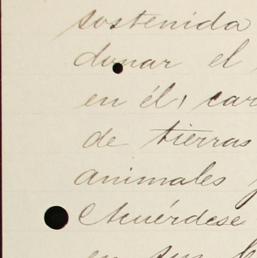 sostenida
donar el
en él, car
de tierras
animales y
Acuérdese
en sus